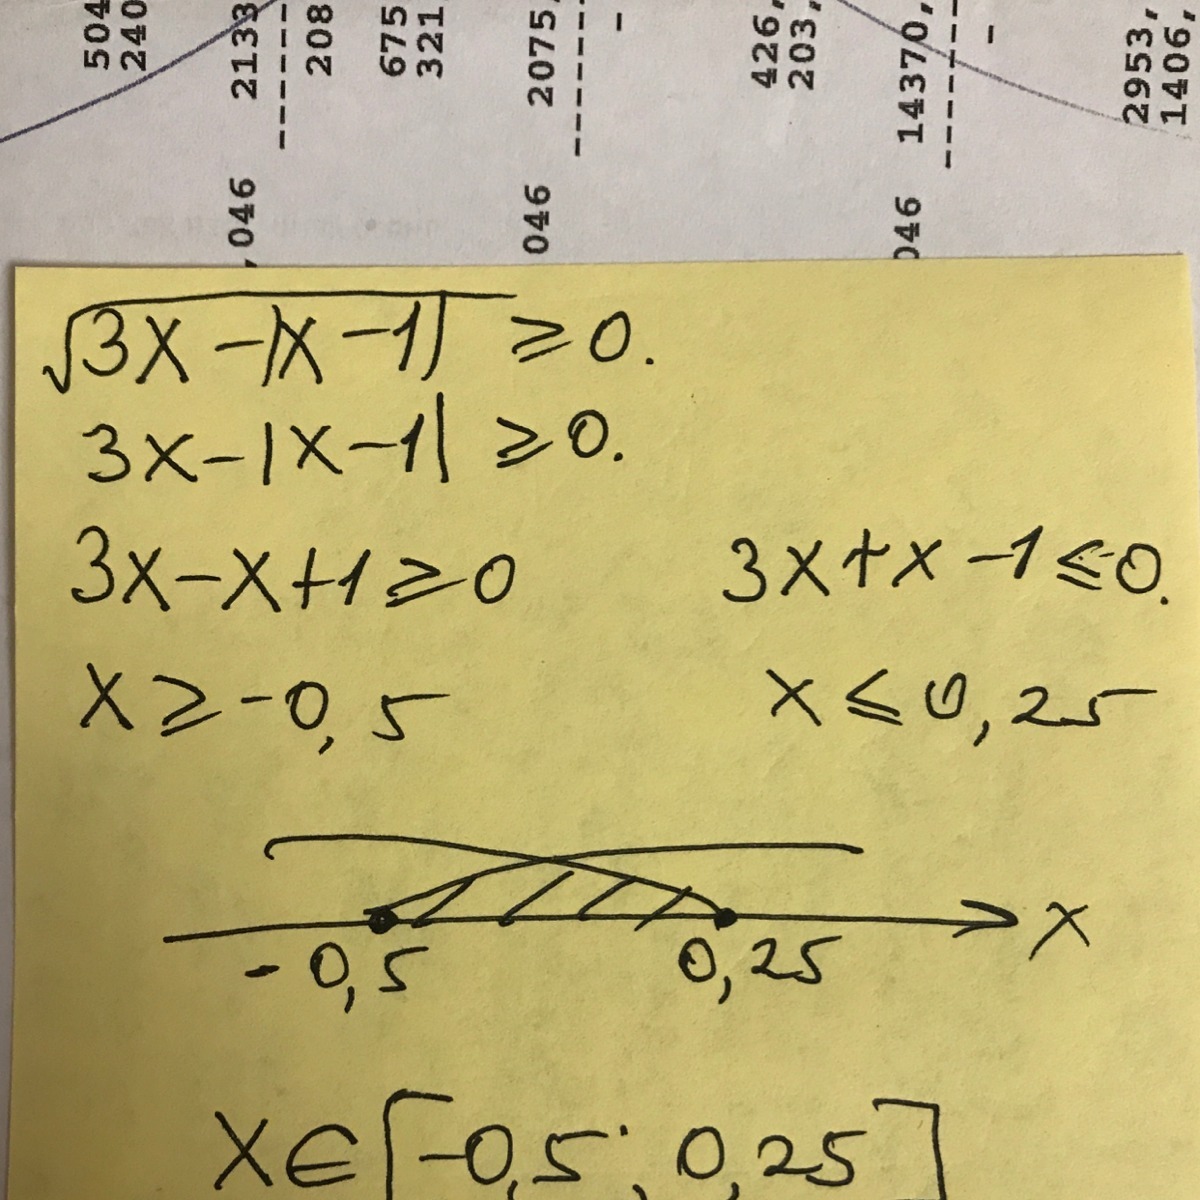 504
240
2133
208
675
321,
2075,
426,
203,
14370,
2953,
1406,
,046
046
046
√3x-|x-1| ≥0.
3x-|x-1| ≥0.
3x-x+1≥0 3x+x-1≤0.
x≥-0,5 x≤0,25
-0,5 0,25 x
x∈[-0,5; 0,25]